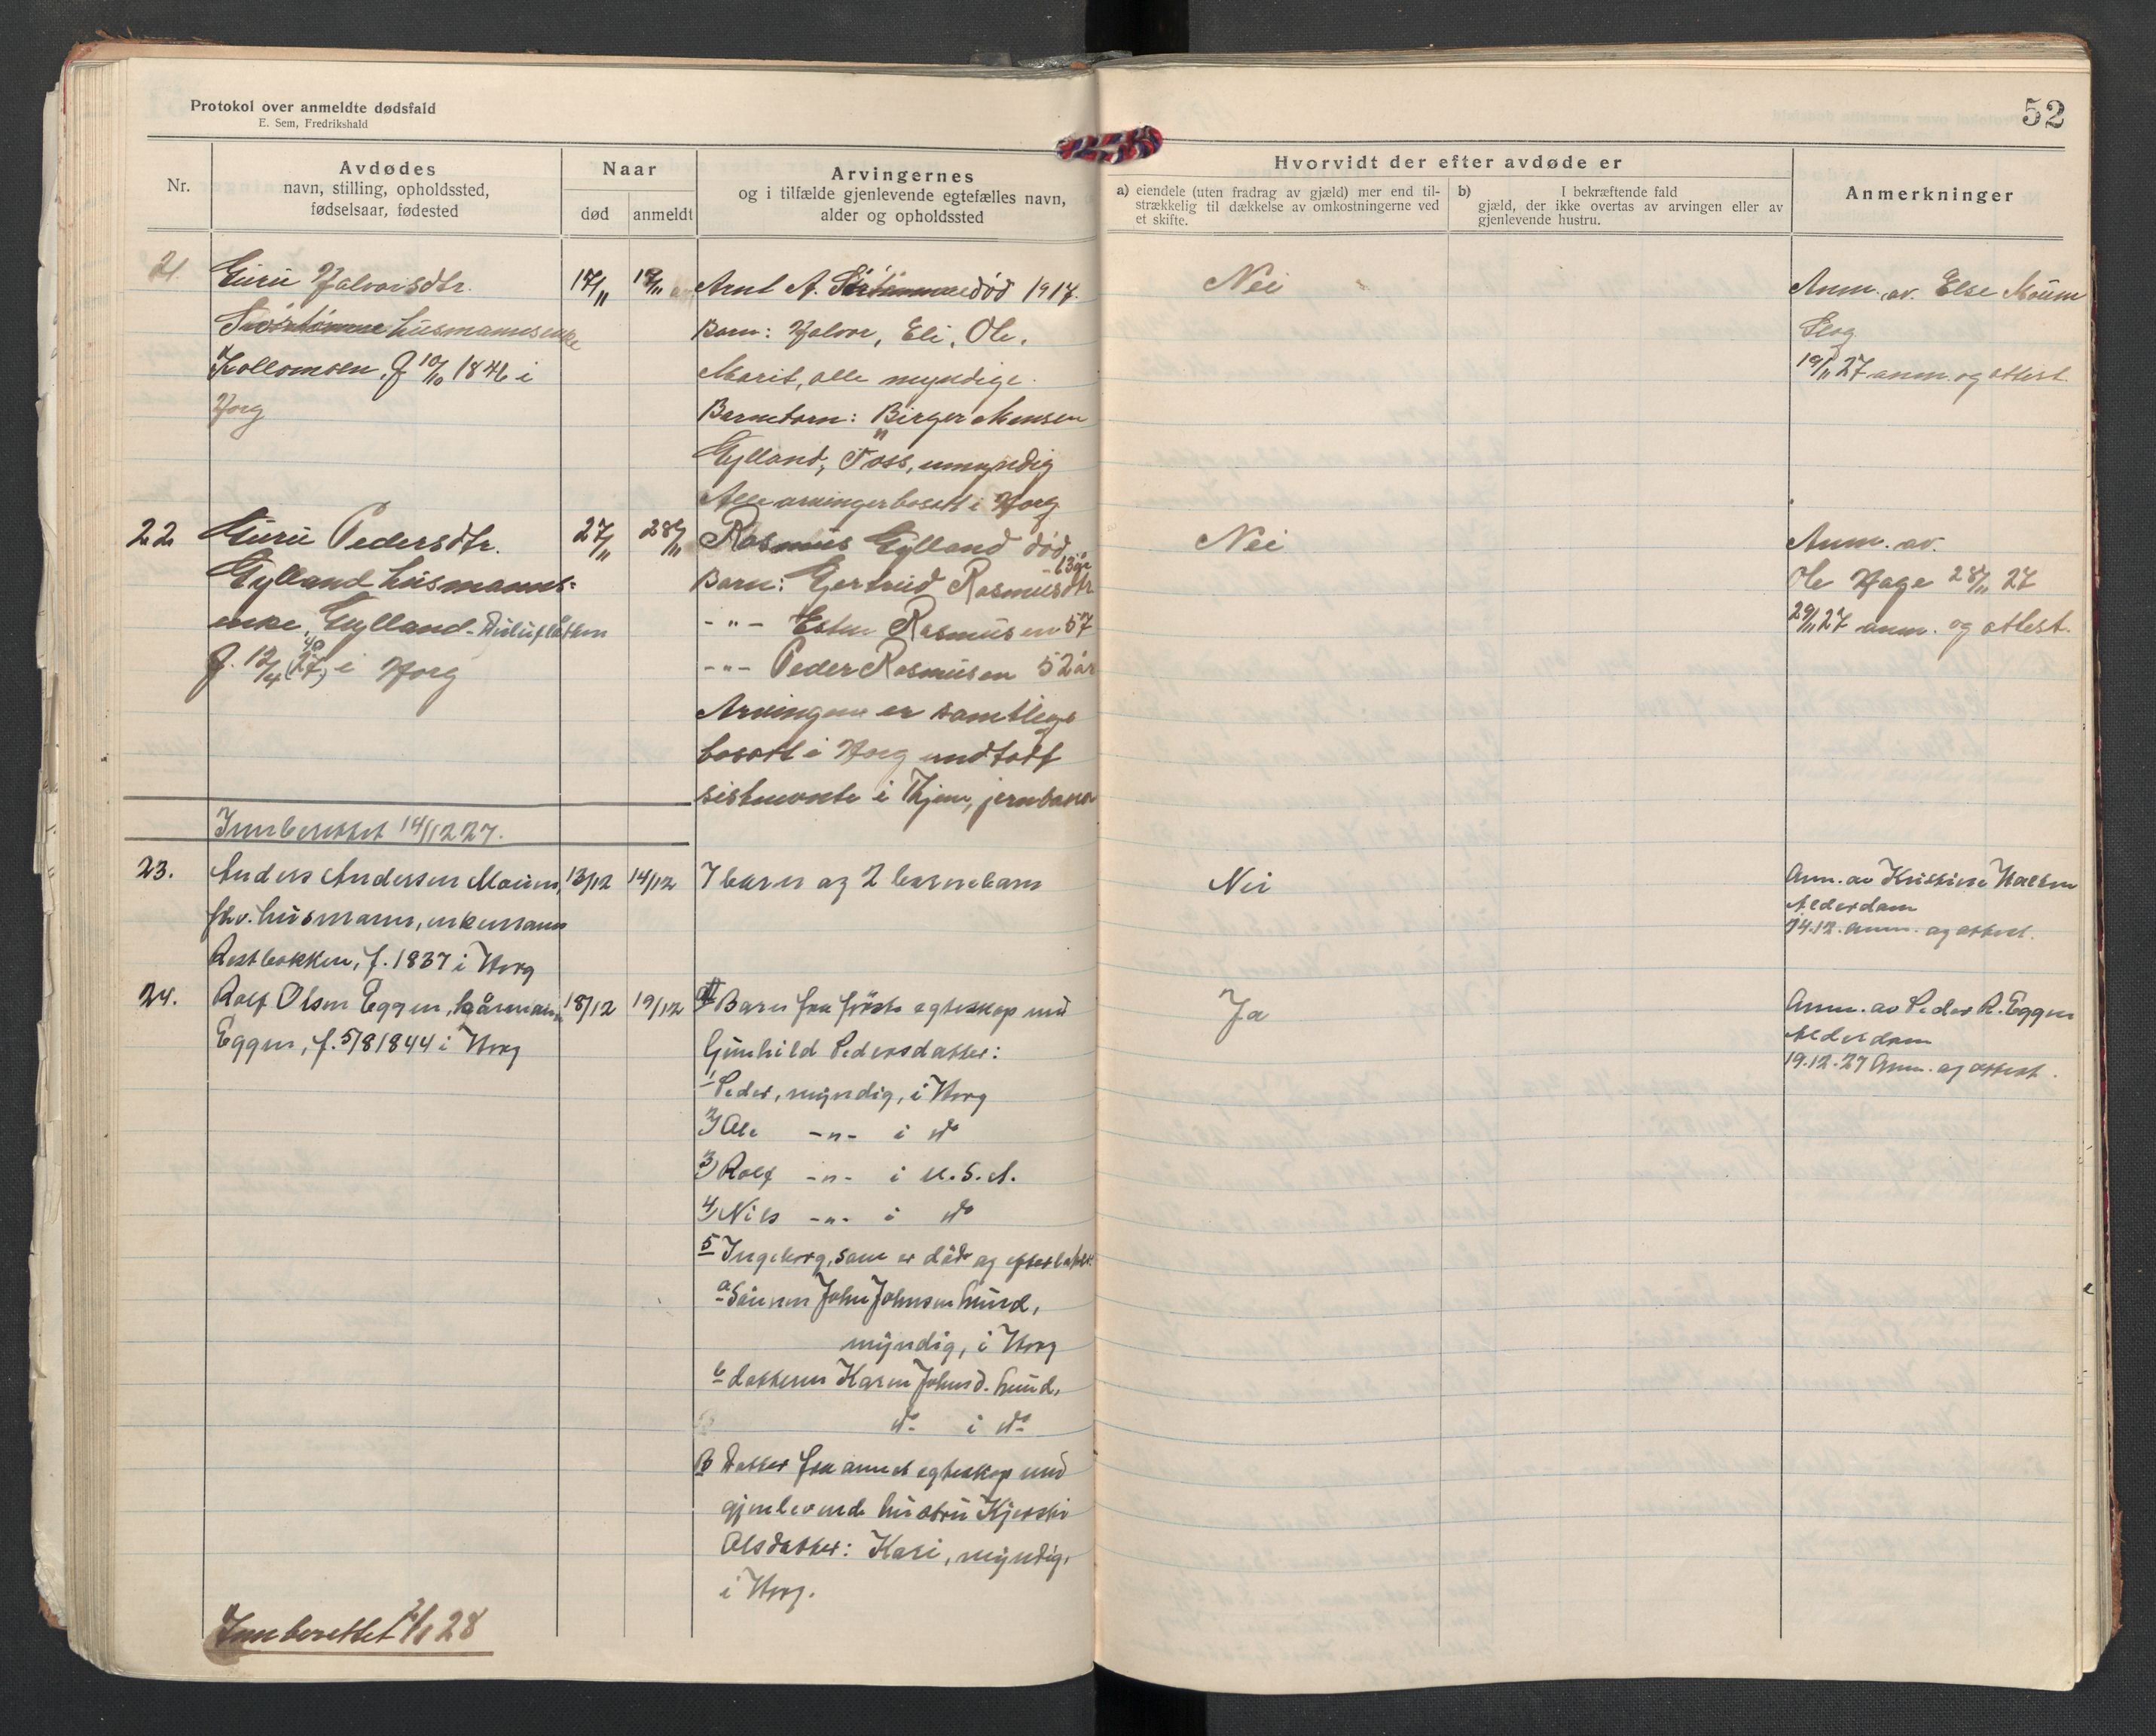 Protokol over anmeldte dødsfald
E. Sem, Fredrikshald
52
Nr.
Avdødes
navn, stilling, opholdssted,
fødselsaar, fødested
Naar
død
anmeldt
Arvingernes
og i tilfælde gjenlevende egtefælles navn,
alder og opholdssted
Hvorvidt der efter avdøde er
a) eiendele (uten fradrag av gjæld) mer end til-
strækkelig til dækkelse av omkostningerne ved
et skifte.
b) I bekræftende fald
gjæld, der ikke overtas av arvingen eller av
gjenlevende hustru.
Anmerkninger
21. Guru Halvorsdtr.
husmannsenke
Kollomoen, f 10/10 1846 i
Horg
17/11
19/11
Arnt A. død 1917.
Barn: Halvor, Eli, Ole,
Marit, alle myndige.
Barnebarn: Birger Monsen
Gylland, Foss, umyndig
Alle arvinger bosatt i Horg
Nei
Anm. av. Else Moum
Flag
19/11 27 anm. og attest.
22 Guru Pedersdtr.
Gylland husmanns-
enke, Gylland-
f. 12/4 (27) i Horg
40
27/11
28/11
Rasmus Gylland død
Barn: Gertrud Rasmusdtr
-"- Rasmusen 57
-"- Peder Rasmusen 52 år
Arvingene er samtlige
bosatt i Horg undtatt
sistnevnte i Thjem, jernbane
Nei
Anm. av.
Ole Hage 28/11 27
29/11 27 anm. og attest.
Innberettet 14/12 27.
23. Anders Andersen Moum,
fhv. husmann, enkemann
Restbakken, f. 1837 i Horg
13/12
14/12
7 barn og 2 barnebarn
Nei
Anm. av Kristine
Alderdom
14.12. anm. og attest.
24. Rolf Olsen Eggen, kårmann
Eggen, f. 5/8 1844 i Horg
18/12
19/12
A Barn fra første egteskap med
Gunhild Pedersdatter:
1 Peder, myndig, i Horg
2) Ole -"- i do
3) Rolf -"- i U.S.A.
4) Nils -"- i do
5 Ingeborg, som er død og efterlater:
a Sønnen John Johnsen Lund,
myndig, i Horg
b datteren Karen Johnsd. Lund,
do i do
B Datter fra annet egteskap med
gjenlevende hustru Kjersti
Olsdatter: Kari, myndig,
i Horg.
Ja
Anm. av Peder R. Eggen
Alderdom
19.12.27 Anm. og attest.
Innberettet 2/1 28